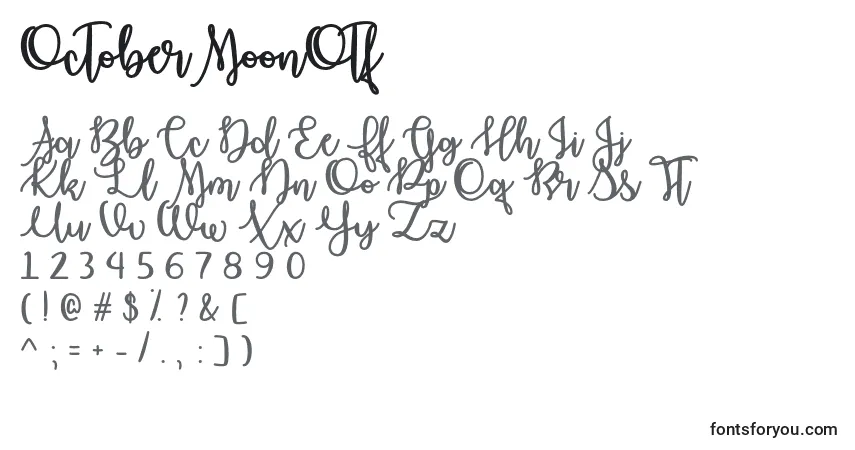 October MoonOTF
Aa Bb Cc Dd Ee Ff Gg Hh Ii Jj
Kk Ll Mm Nn Oo Pp Qq Rr Ss Tt
Uu Vv Ww Xx Yy Zz
1 2 3 4 5 6 7 8 9 0
( ! @ # $ % ? & [
^ ; = + - / . , : ] )
fontsforyou.com